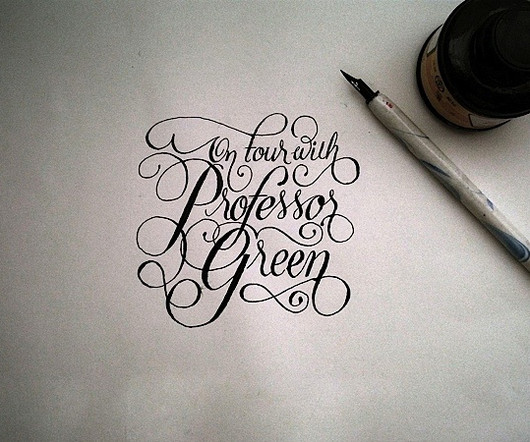 On tour with
Professor
Green